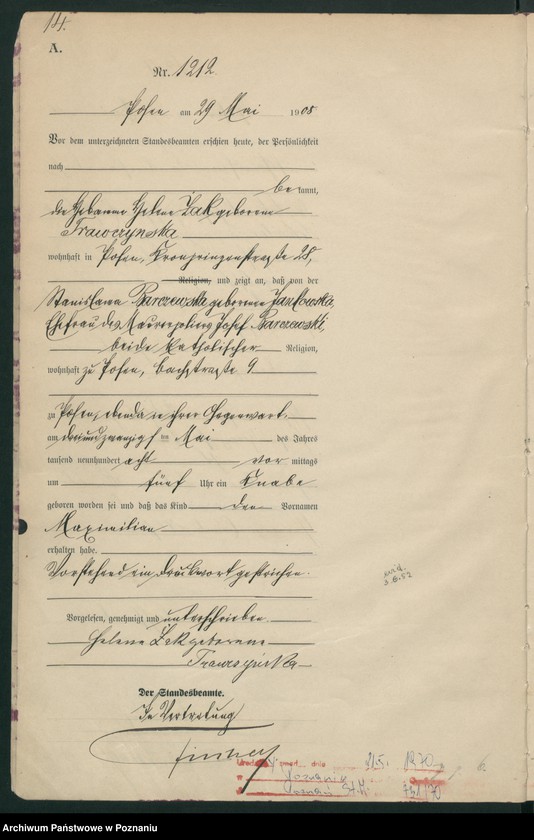 14.
A.
Nr. 1212
Posen am 29 Mai 1908
Vor dem unterzeichneten Standesbeamten erschien heute, der Persönlichkeit
nach
bekannt,
die Hebamme Helene Żak geborene
Trawczynska
wohnhaft in Posen, Kronprinzenstraße 28,
Religion, und zeigt an, daß von der
Stanisława Barczewska geborene Jankowska,
Ehefrau des Maurerpoliers Josef Barczewski,
beide katholischer Religion,
wohnhaft zu Posen, Bachstraße 9
zu Posen, ebenda in ihrer Gegenwart
am dreiundzwanzigsten Mai des Jahres
tausend neunhundert acht vormittags
um fünf Uhr ein Knabe
geboren worden sei und daß das Kind den Vornamen
Maximilian
erhalten habe.
Vorstehend ein Druckwort gestrichen.
Vorgelesen, genehmigt und unterschrieben.
Helene Żak geborene
Der Standesbeamte.
In Vertretung
zmarł dnia 1970
Archiwum Państwowe w Poznaniu